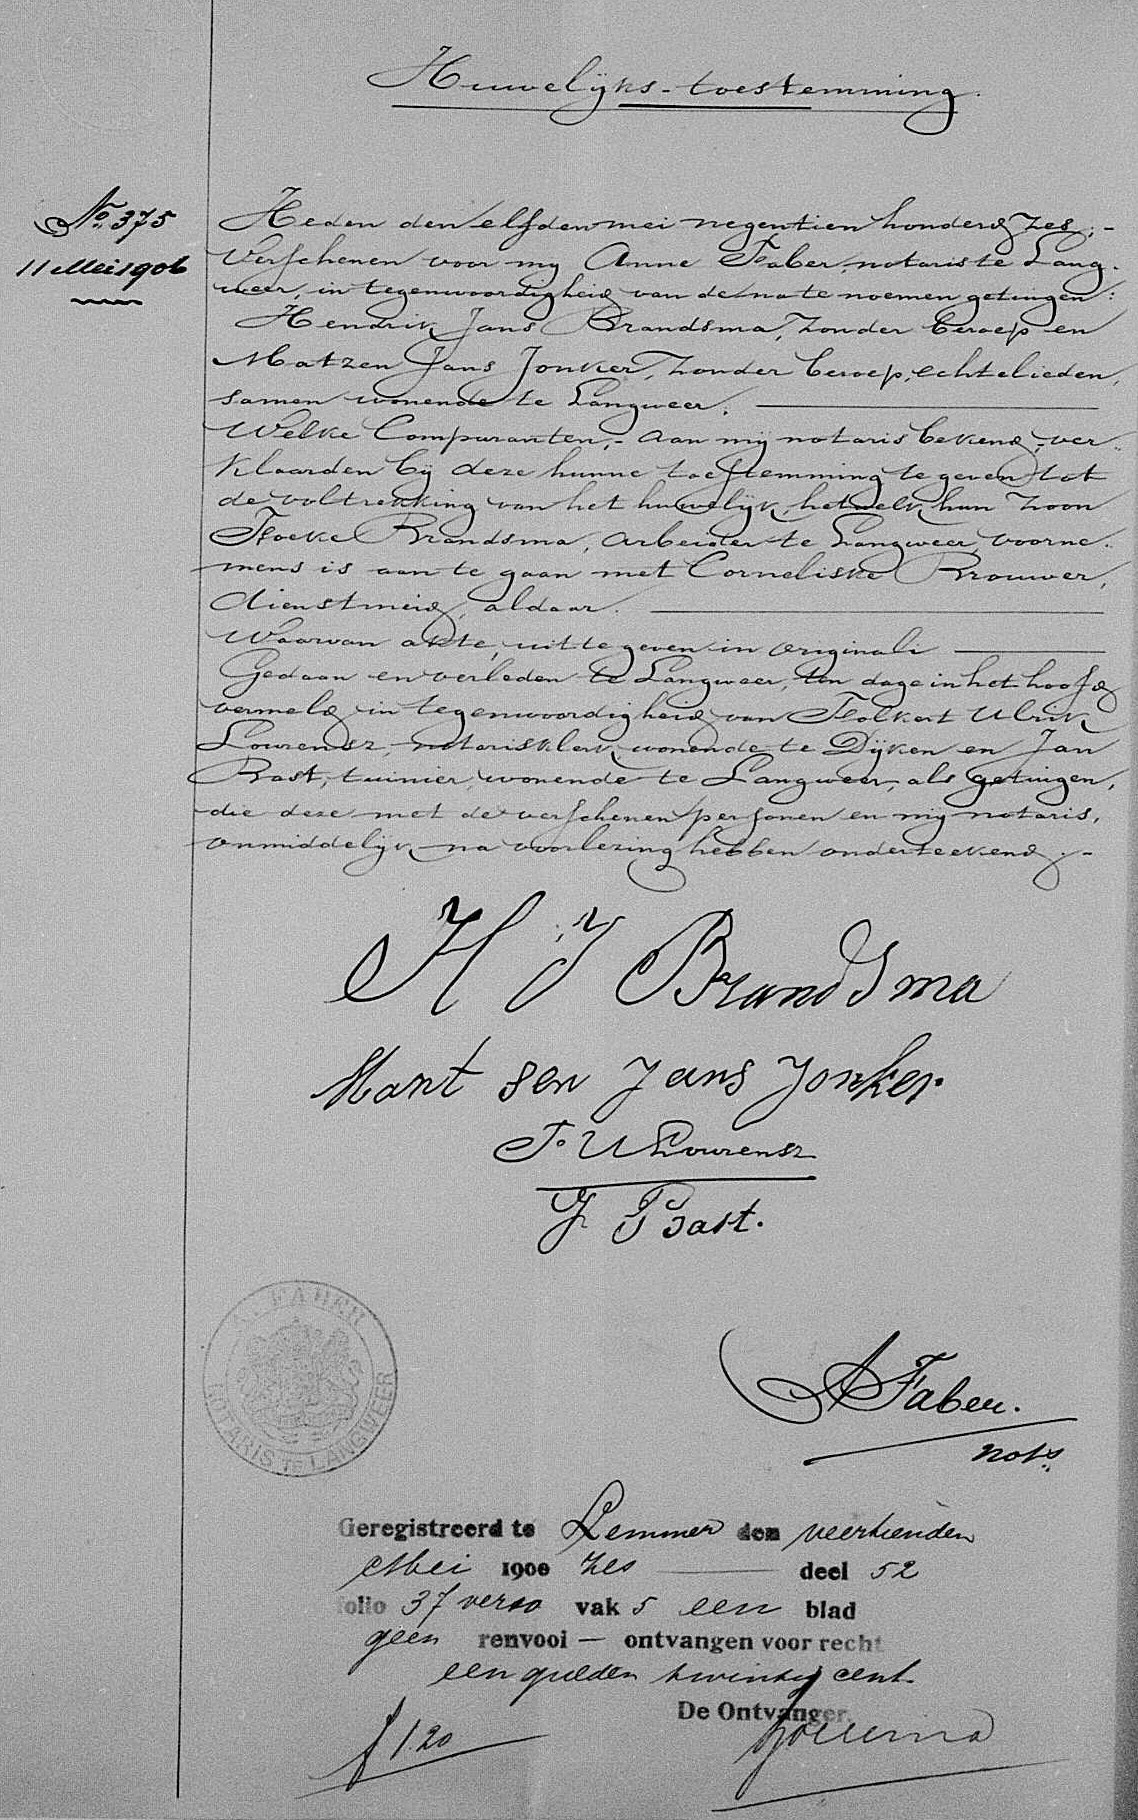 Huwelijks-toestemming.
No 375
11 Mei 1906
Heden den elfden mei negentien honderd zes,-
verschenen voor mij Anne Faber, notaris te Lang-
weer, in tegenwoordigheid van de na te noemen getuigen:
Hendrik Jans Brandsma, zonder beroep en
Matzen Jans Jonker, zonder beroep, echtelieden,
samen wonende te Langweer.
Welke Comparanten,- aan mij notaris bekend, ver-
klaarden bij deze hunne toestemming te geven tot
de voltrekking van het huwelijk, hetwelk hun zoon
Foeke Brandsma, arbeider te Langweer, voorne-
mens is aan te gaan met Corneliske Brouwer,
dienstmeid, aldaar.
Waarvan akte, uit te geven in originali
Gedaan en verleden te Langweer, ten dage in het hoofd
vermeld in tegenwoordigheid van Folkert Ulrik
Lourensz, notarisklerk, wonende te Dijken en Jan
Bast, tuinier, wonende te Langweer, als getuigen,
die deze met de verschenen personen en mij notaris,
onmiddelijk na voorlezing hebben onderteekend.-
H J Brandsma
Mant sen Jans Jonker.
F. U Lourensz
J Bast.
A. FABER
NOTARIS TE LANGWEER
A Faber.
nots.
Geregistreerd te Lemmer den veertienden
Mei 1900 zes deel 52
folio 37 verso vak 5 een blad
geen renvooi — ontvangen voor recht
een gulden twintig cent.
De Ontvanger,
f 1.20